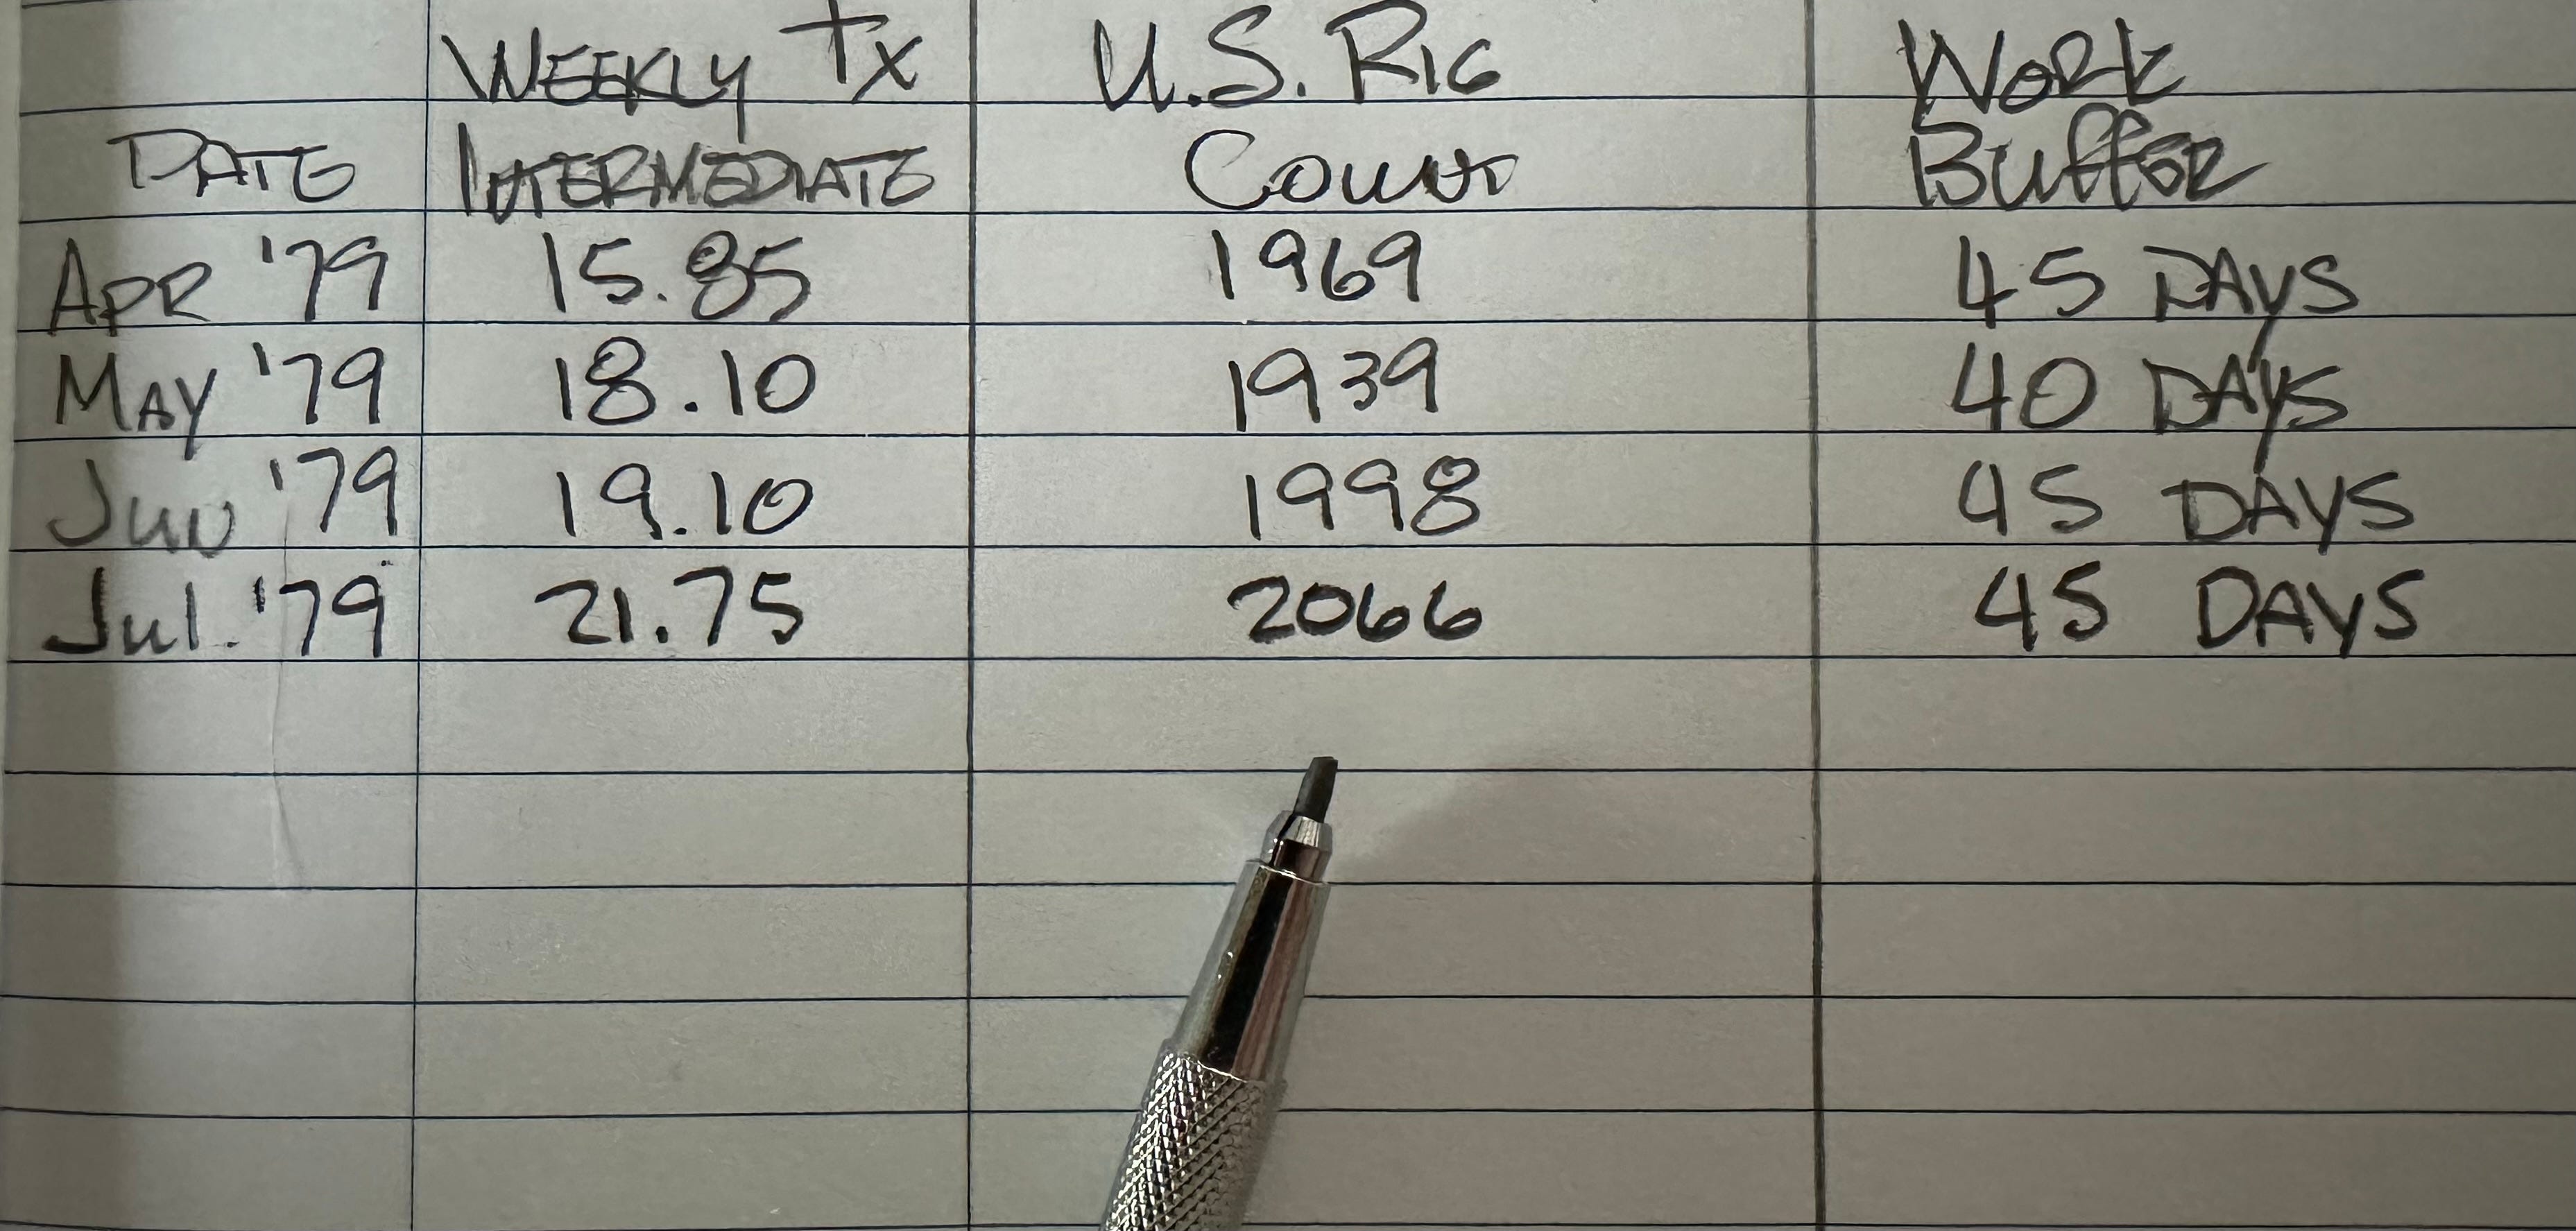 WEEKLY TX U.S. RIG WORK
DATE INTERMEDIATE COUNT BUFFER
APR '79 15.85 1969 45 DAYS
MAY '79 18.10 1939 40 DAYS
JUN '79 19.10 1998 45 DAYS
JUL. '79 21.75 2066 45 DAYS